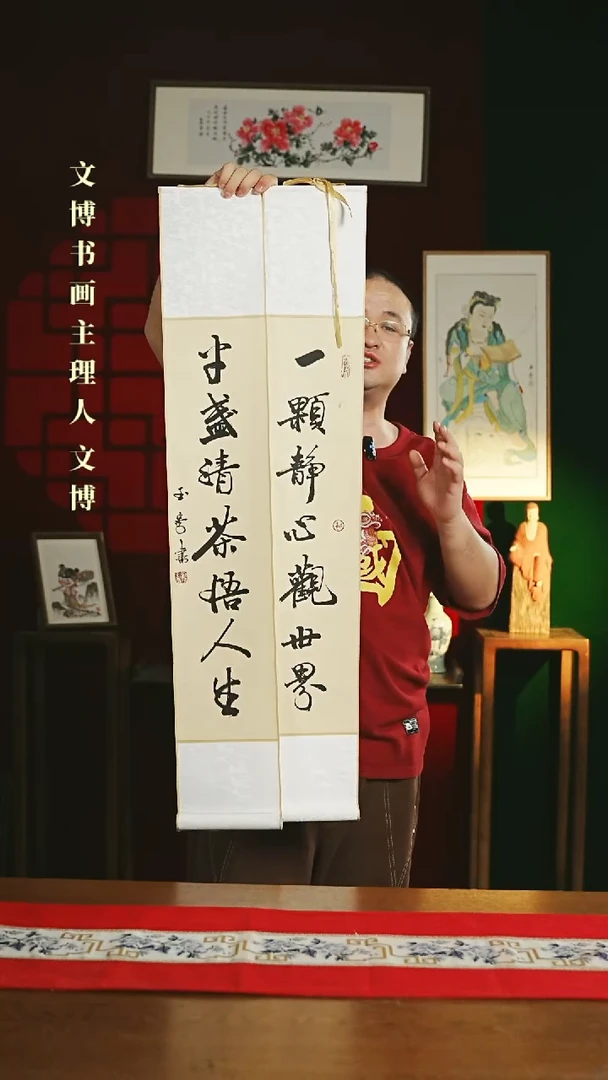 文博书画主理人文博
一顆静心觀世界
半盏清茶悟人生
國